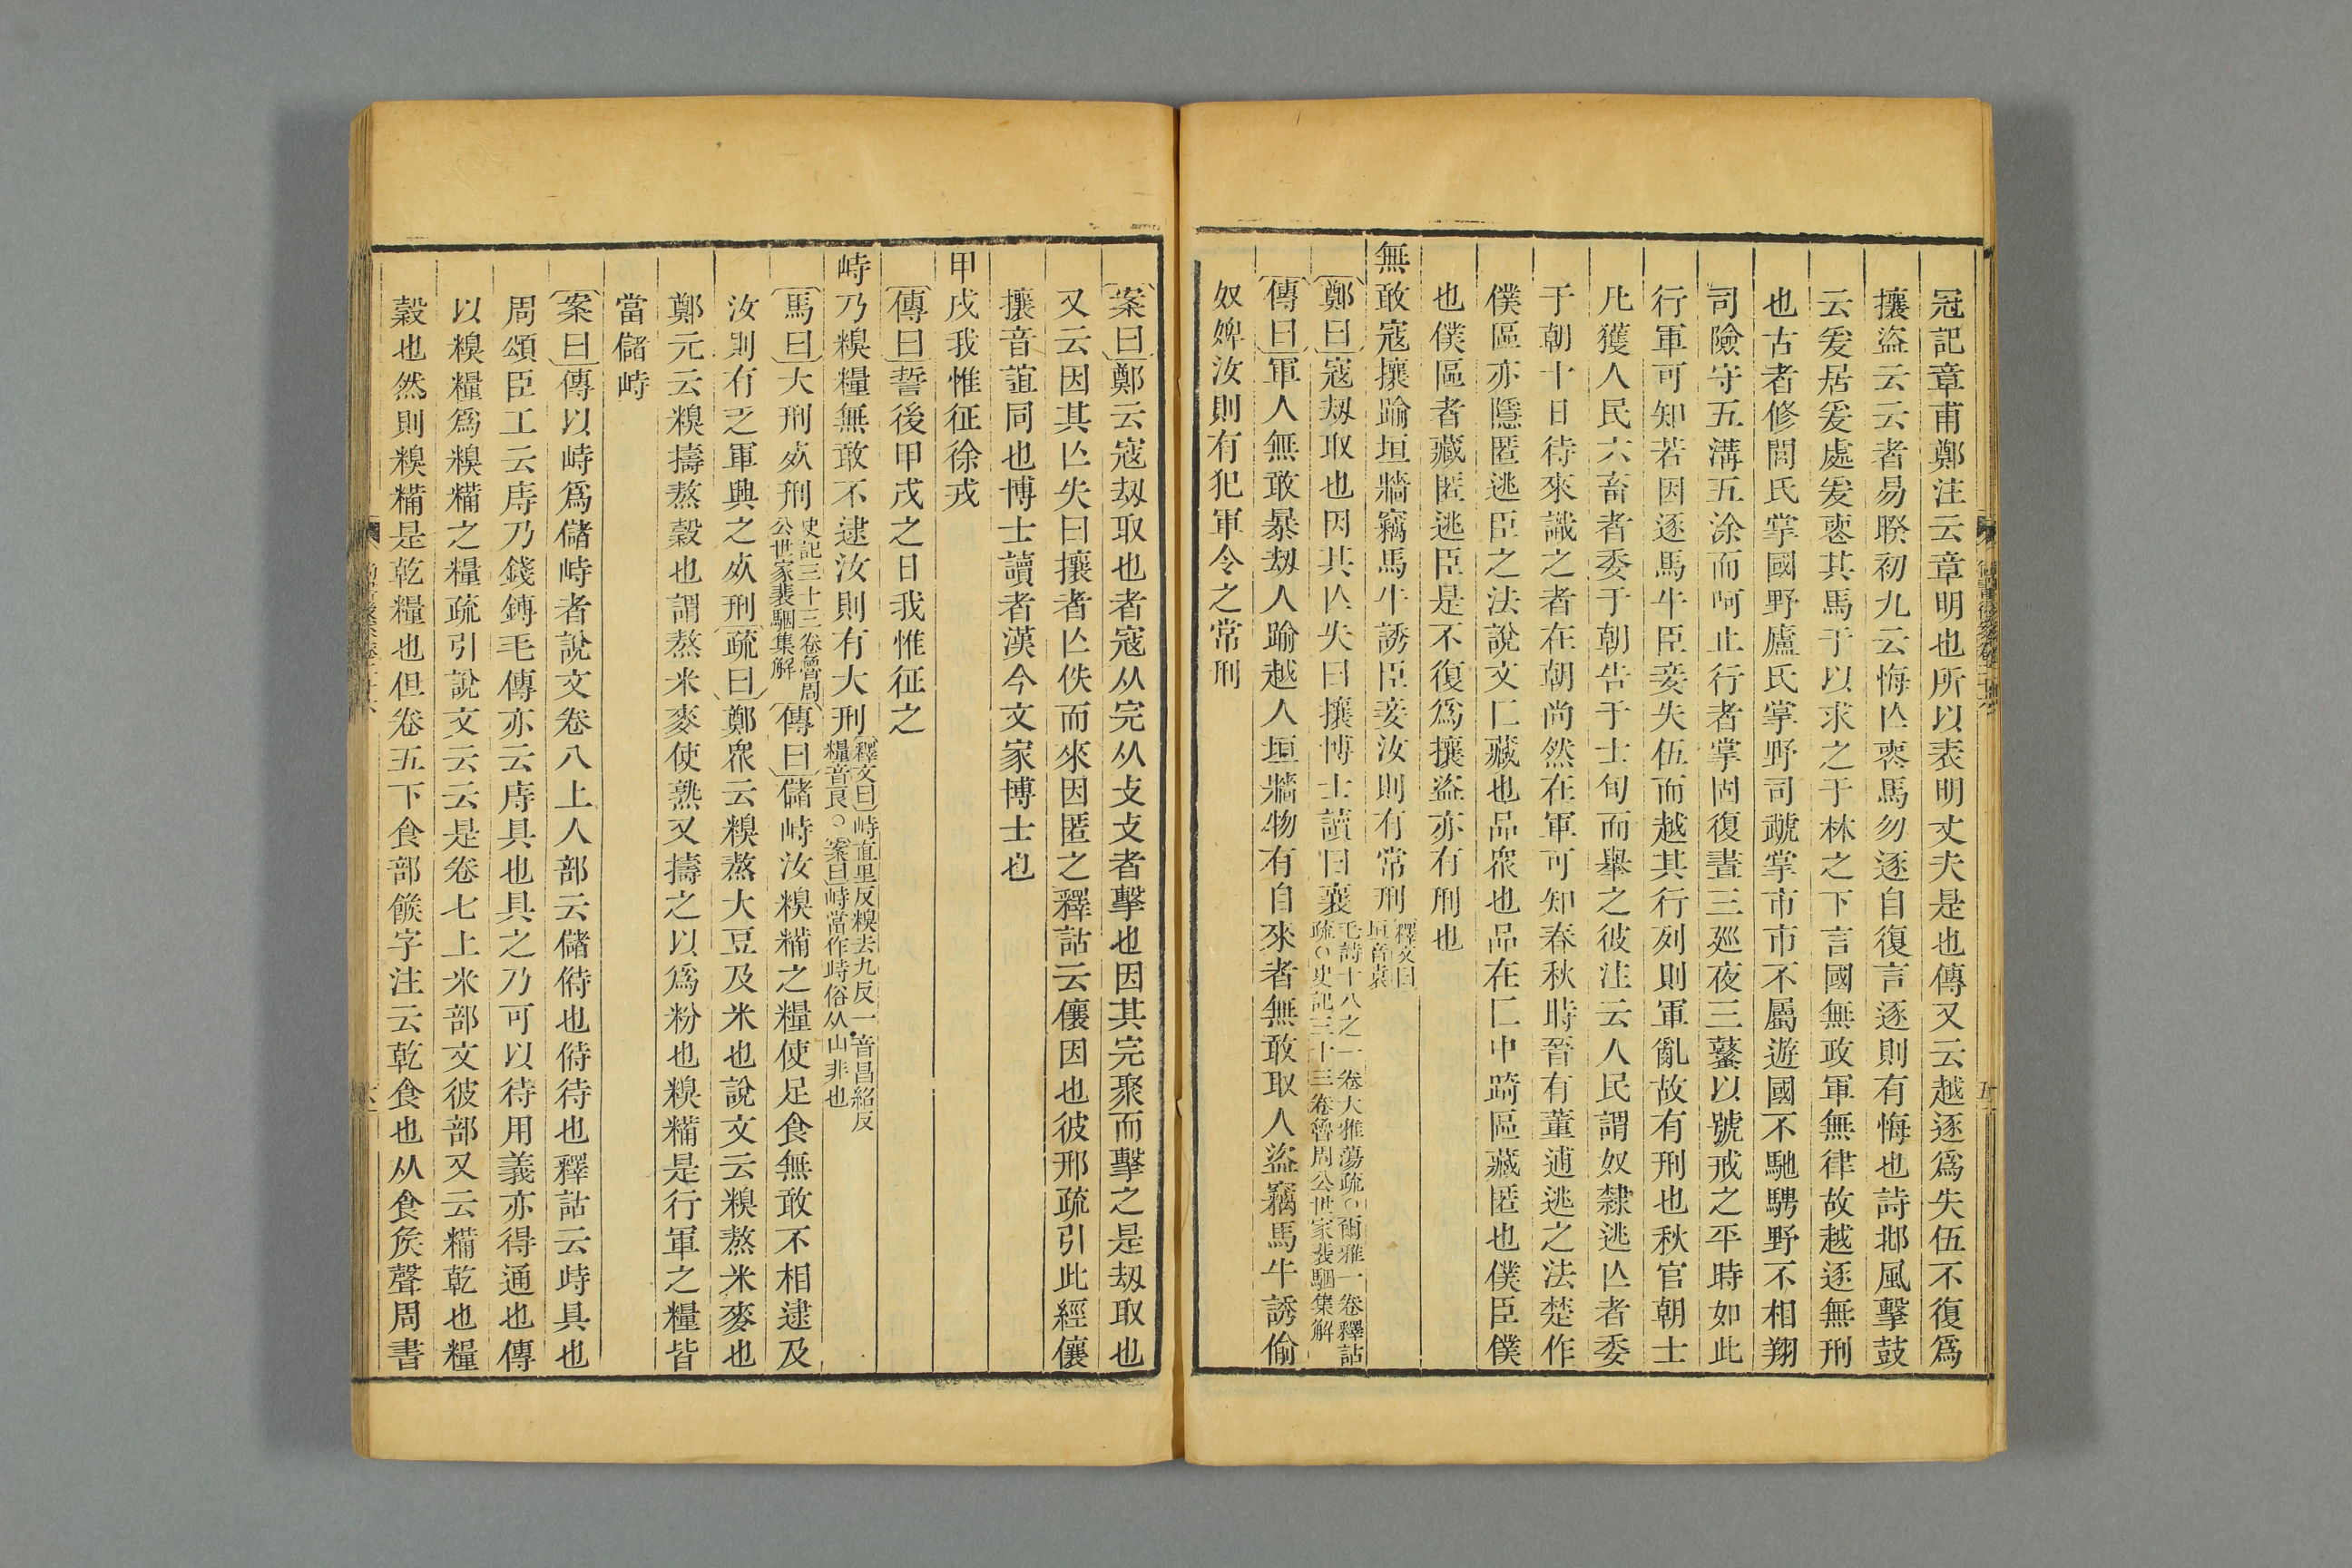 冠記章甫鄭注云章明也所以表明丈夫是也傳又云越逐爲失伍不復爲
攘盜云云者易睽初九云悔亾喪馬勿逐自復言逐則有悔也詩邶風擊鼓
云爰居爰處爰喪其馬于以求之于林之下言國無政軍無律故越逐無刑
也古者修閭氏掌國野廬氏掌野司虣掌市市不屬遊國不馳騁野不相翔
司險守五溝五涂而呵止行者掌固復晝三廵夜三鼜以號戒之平時如此
行軍可知若因逐馬牛臣妾失伍而越其行列則軍亂故有刑也秋官朝士
凡獲人民六畜者委于朝告于士旬而舉之彼注云人民謂奴隸逃亾者委
于朝十日待來識之者在朝尚然在軍可知春秋時晉有董逋逃之法楚作
僕區亦隱匿逃臣之法說文匸藏也品衆也品在匸中踦區藏匿也僕臣僕
也僕區者藏匿逃臣是不復爲攘盜亦有刑也
無敢寇攘踰垣牆竊馬牛誘臣妾汝則有常刑釋文曰垣音袁
鄭曰寇刼取也因其亾失曰攘博士讀曰襄毛詩十八之一卷大雅蕩疏○爾雅一卷釋詁疏○史記三十三卷魯周公世家裴駰集解
傳曰軍人無敢暴刼人踰越人垣牆物有自來者無敢取人盜竊馬牛誘偷
奴婢汝則有犯軍令之常刑
案曰鄭云寇刼取也者寇从完从攴攴者擊也因其完聚而擊之是刼取也
又云因其亾失曰攘者亾佚而來因匿之釋詁云儴因也彼邢疏引此經儴
攘音誼同也博士讀者漢今文家博士也
甲戌我惟征徐戎
傳曰誓後甲戌之日我惟征之
峙乃糗糧無敢不逮汝則有大刑釋文曰峙直里反糗去九反一音昌紹反糧音良○案曰峙當作峕俗从山非也
馬曰大刑㱾刑史記三十三卷魯周公世家裴駰集解傳曰儲峙汝糗糒之糧使足食無敢不相逮及
汝則有乏軍興之㱾刑疏曰鄭衆云糗熬大豆及米也說文云糗熬米麥也
鄭元云糗擣熬穀也謂熬米麥使熟又擣之以爲粉也糗糒是行軍之糧皆
當儲峙
案曰傳以峙爲儲峙者說文卷八上人部云儲偫也偫待也釋詁云峙具也
周頌臣工云庤乃錢鎛毛傳亦云庤具也具之乃可以待用義亦得通也傳
以糗糧爲糗糒之糧疏引說文云云是卷七上米部文彼部又云糒乾也糧
穀也然則糗糒是乾糧也但卷五下食部餱字注云乾食也从食矦聲周書